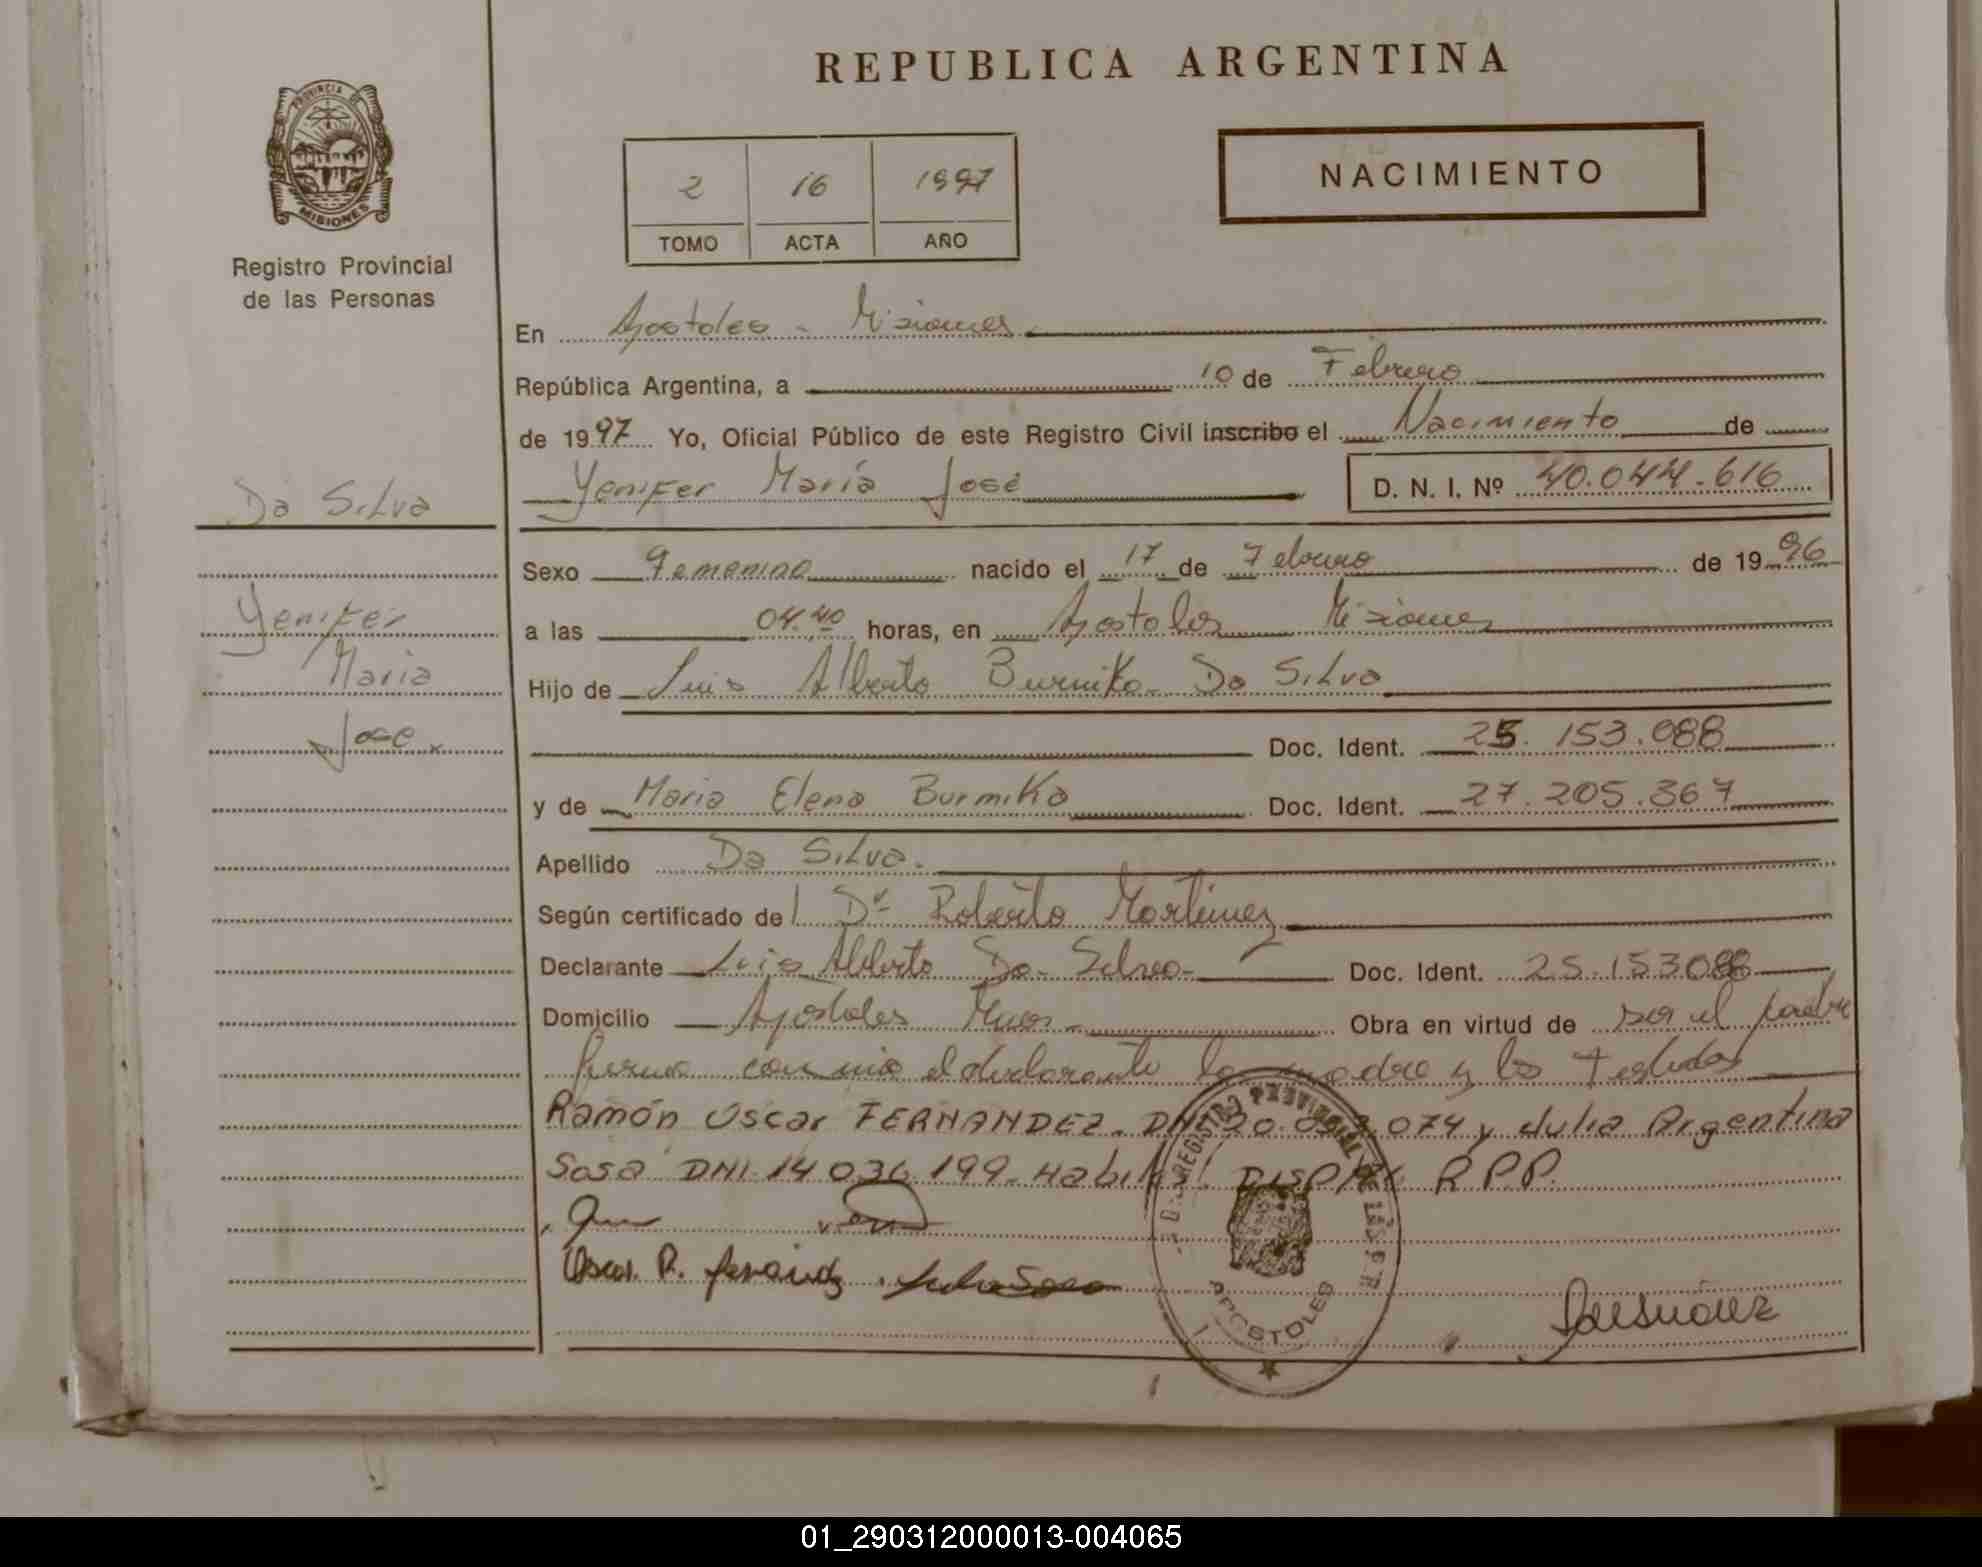 REPUBLICA ARGENTINA
PROVINCIA DE
MISIONES
Registro Provincial
de las Personas
2 16 1997
TOMO ACTA AÑO
NACIMIENTO
En Apostoles - Misiones
República Argentina, a 10 de Febrero
de 1997 Yo, Oficial Público de este Registro Civil inscribo el Nacimiento de
Yenifer María José D. N. I. Nº 40.044.616
Da Silva
Yenifer
Maria
Jose.
Sexo Femenino nacido el 17 de Febrero de 1996
a las 04.40 horas, en Apostoles Misiones
Hijo de Luis Alberto Burniko Da Silva
Doc. Ident. 25.153.088
y de Maria Elena Burmika Doc. Ident. 27.205.367
Apellido Da Silva.
Según certificado de Dr Roberto Martinez
Declarante Luis Alberto Da Silva Doc. Ident. 25.153088
Domicilio Apostoles Mnes. Obra en virtud de ser el padre
firma con mio el declarante la madre y los testigos
Ramón Oscar FERNANDEZ. DNI 20. 074 y Julia Argentina
Sosa DNI. 14.036.199. Habil DISP R.P.P.
Oscar R. fernandez
REGISTRO PROVINCIAL DE LAS P.
APOSTOLES
01_290312000013-004065